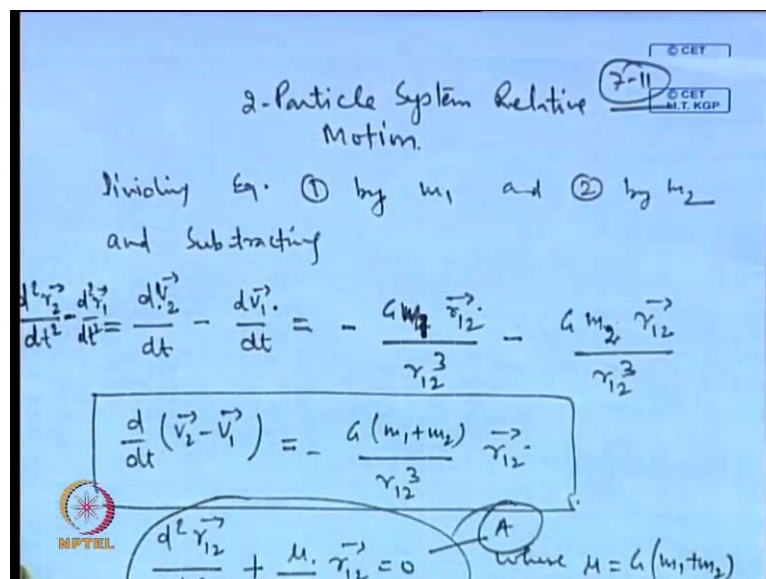 © CET
7-11
© CET
M.T. KGP
2-Particle System Relative
Motion.
Dividing Eq. ① by m₁ and ② by m₂
and Subtracting
d²r₂→/dt² - d²r₁→/dt² = dV₂→/dt - dV₁→/dt = - G m₁ r₁₂→/r₁₂³ - G m₂ r₁₂→/r₁₂³
d/dt (V₂→ - V₁→) = - G (m₁+m₂)/r₁₂³ r₁₂→
d² r₁₂→ + μ r₁₂→ = 0 A where μ = G (m₁+m₂)
NPTEL